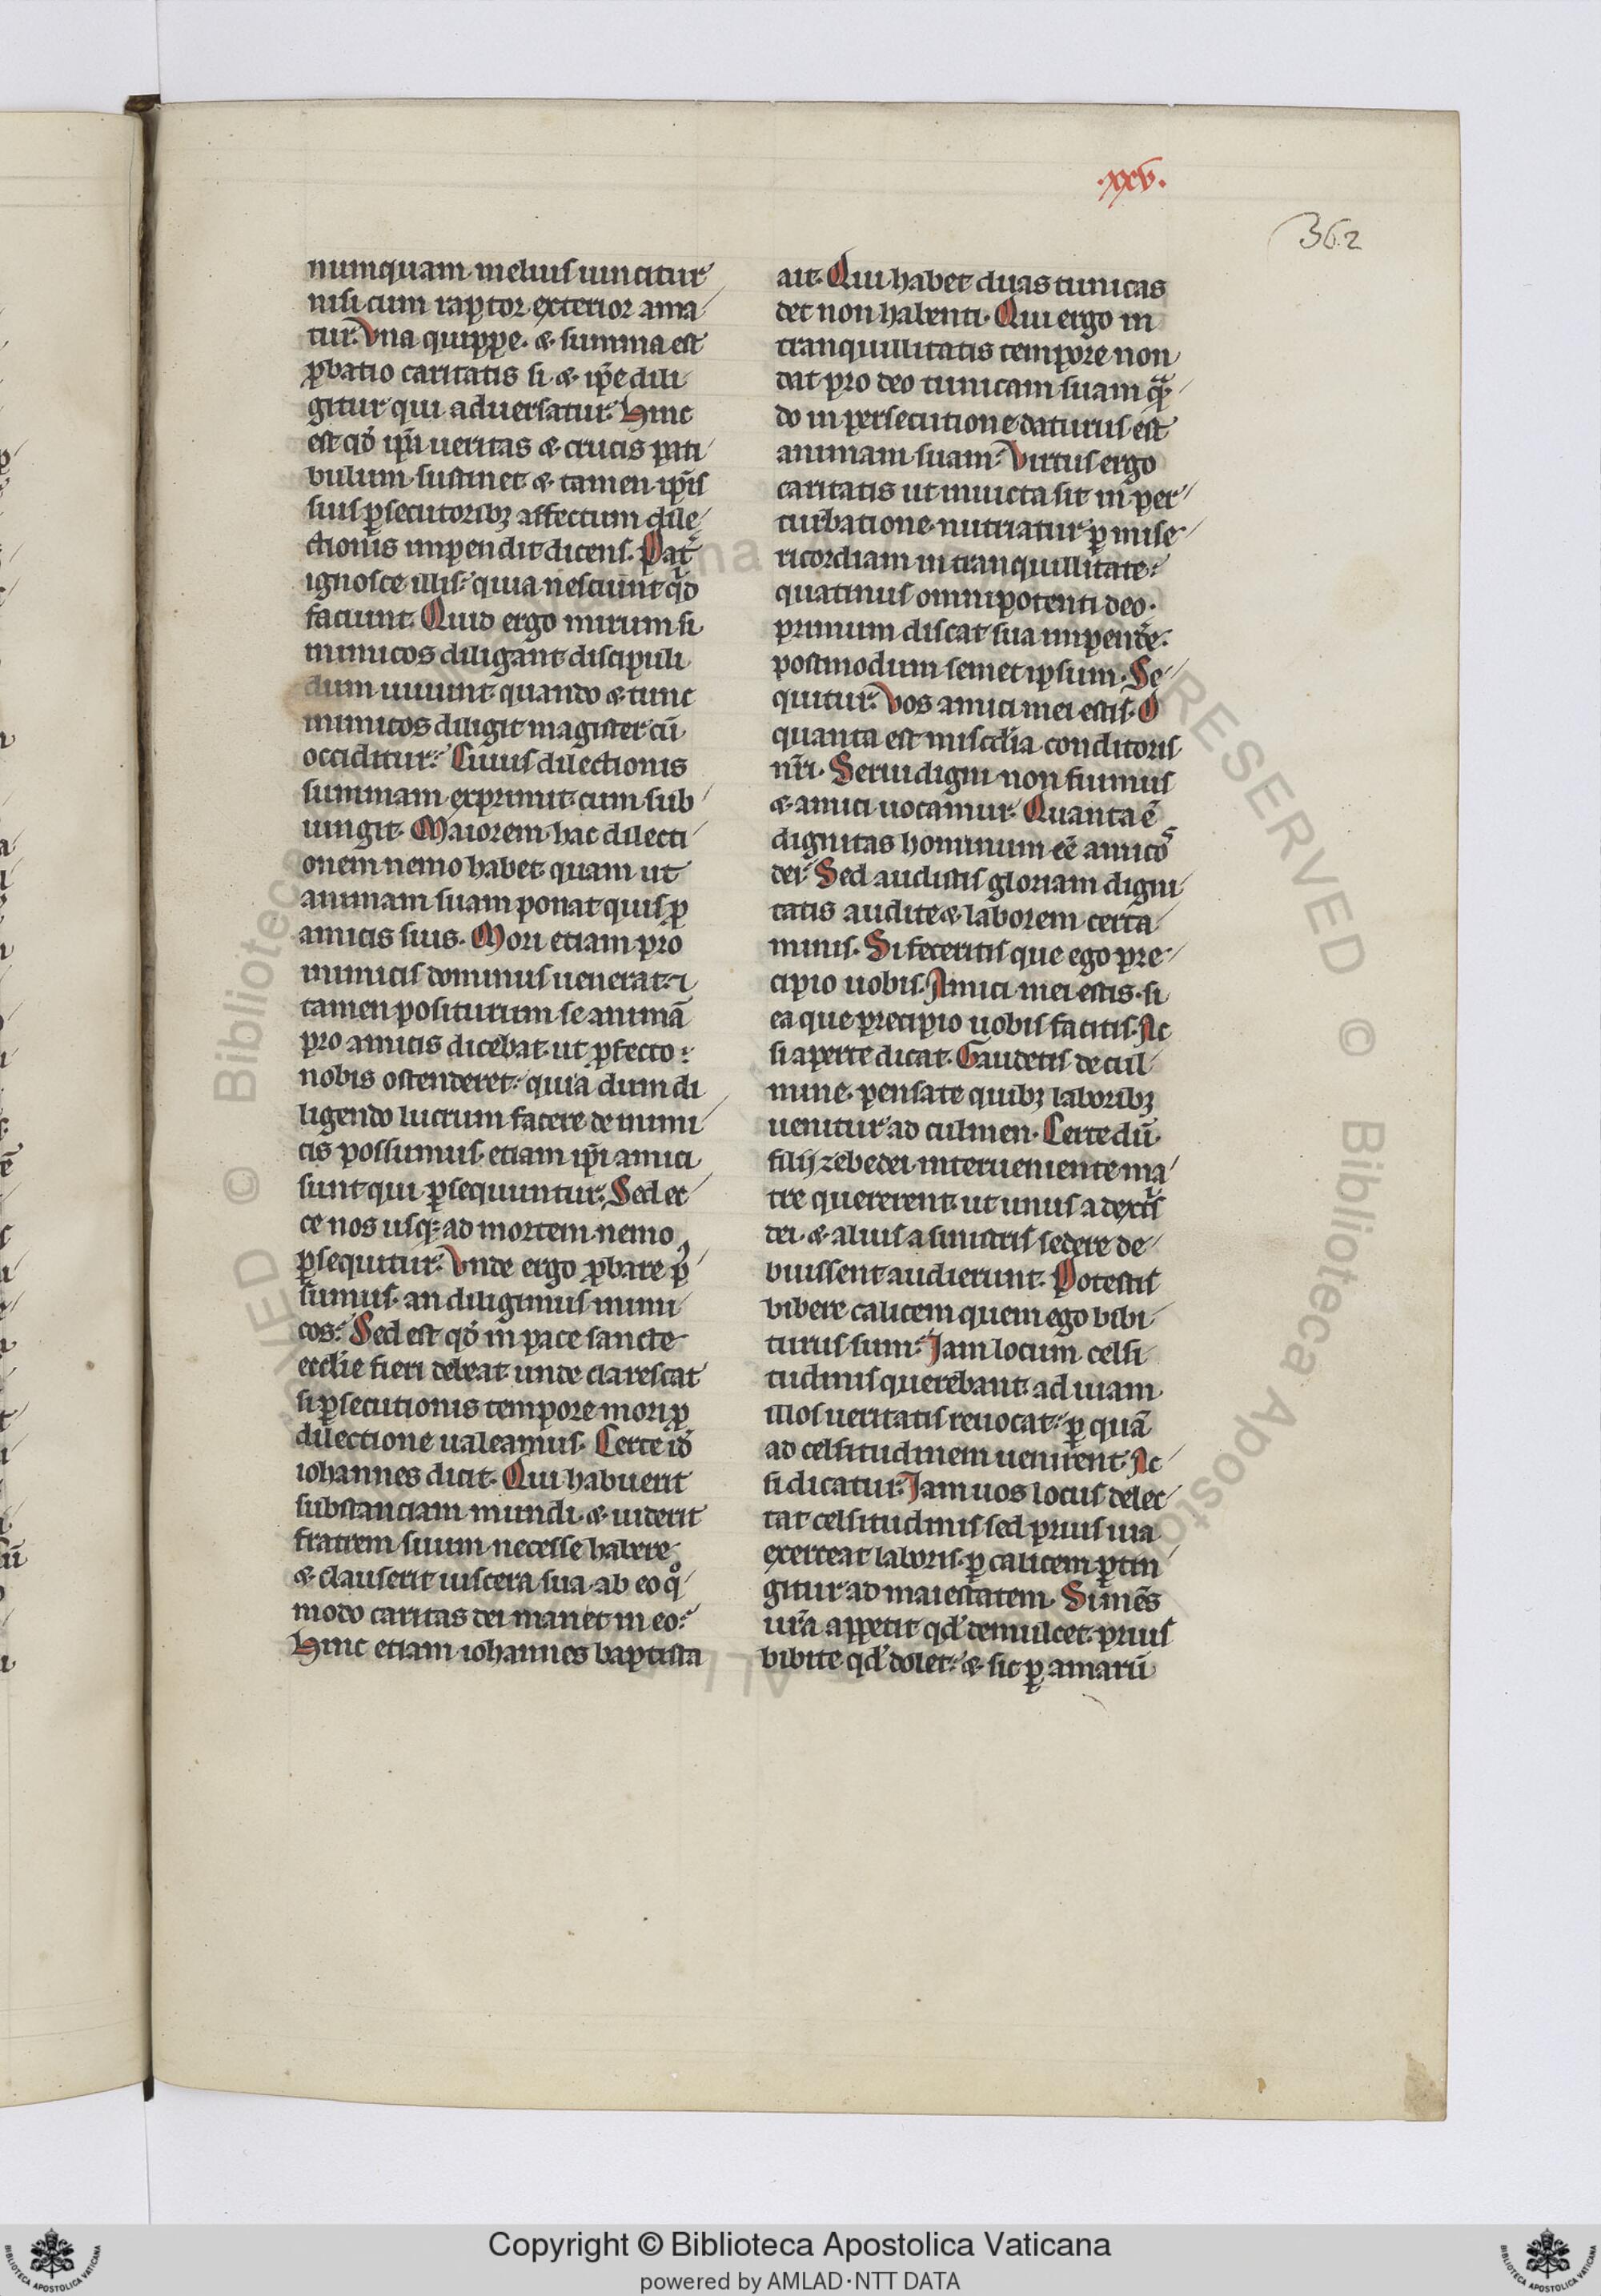 .xxv.
362
numquam melius uincitur
nisi cum raptor exterior ama
tur. Vna quippe. & summa est
ꝓbatio caritatis si & ip̄e dili
gitur qui aduersatur. Hinc
est qđ ip̄a ueritas & crucis pati
bulum sustinet & tamen ip̄is
suis ꝑsecutoribꝫ affectum dile
ctionis impendit dicens. Pat̄
ignosce illis quia nesciunt qͥd
faciunt. Quid ergo mirum si
inimicos diligant discipuli
dum uiuunt quando & tunc
inimicos diligit magister cū
occiditur. Cuius dilectionis
summam exprimit cum sub
iungit. Maiorem hac dilecti
onem nemo habet quam ut
animam suam ponat quis ꝑ
amicis suis. Mori etiam pro
inimicis dominus uenerat ⁊
tamen positurum se animā
pro amicis dicebat ut ꝓfecto
nobis ostenderet quia dum di
ligendo lucrum facere de inimi
cis possumus etiam ip̄i amici
sunt qui ꝑsequuntur. Sed ec
ce nos usqꝫ ad mortem nemo
ꝑsequitur. Vnde ergo ꝓbare pꝰ
sumus. an diligimus inimi
cos. Sed est qđ in pace sancte
eccl̄ie fieri debeat unde clarescat
si ꝑsecutionis tempore mori ꝓ
dilectione ualeamus. Certe id̄
iohannes dicit. Qui habuerit
substanciam mundi. & uiderit
fratrem suum necesse habere
& clauserit uiscera sua ab eo qͦ
modo caritas dei manet in eo.
Hinc etiam iohannes baptista
ait. Qui habet duas tunicas
det non habenti. Qui ergo in
tranquillitatis tempore non
dat pro deo tunicam suam qͣn
do in persecutione daturus est
animam suam. Virtus ergo
caritatis ut inuicta sit in per
turbatione nutriatur ꝑ mise
ricordiam in tranquillitate.
quatinus omnipotenti deo.
primum discat sua impende̅.
postmodum semet ipsum. Se
quitur. Vos amici mei estis. O
quanta est mis̄cdia conditoris
nr̄i. Serui digni non sumus
& amici uocamur. Quanta ē
dignitas hominum eē amicos
dei. Sed audistis gloriam digni
tatis audite & laborem certa
minis. Si feceritis que ego pre
cipio uobis. Amici mei estis. si
ea que precipio uobis facitis. Ac
si aperte dicat. Gaudetis de cul
mine. pensate quibꝫ laboribꝫ
uenitur ad culmen. Certe dū
filij zebedei interueniente ma
tre quererent ut unus a dextͥs
dei. & alius a sinistris sedere de
buissent audierunt. Potestis
bibere calicem quem ego bibi
turus sum. Iam locum celsi
tudinis querebant ad uiam
illos ueritatis reuocat. ꝑ quā
ad celsitudinem uenirent. Ac
si dicatur. Iam uos locus delec
tat celsitudinis sed prius uia
exerceat laboris. ꝑ calicem ꝑtin
gitur ad maiestatem. Si mēs
ur̄a appetit qđ demulcet. prius
bibite qđ dolet. & sic ꝑ amarū
Copyright © Biblioteca Apostolica Vaticana
powered by AMLAD·NTT DATA